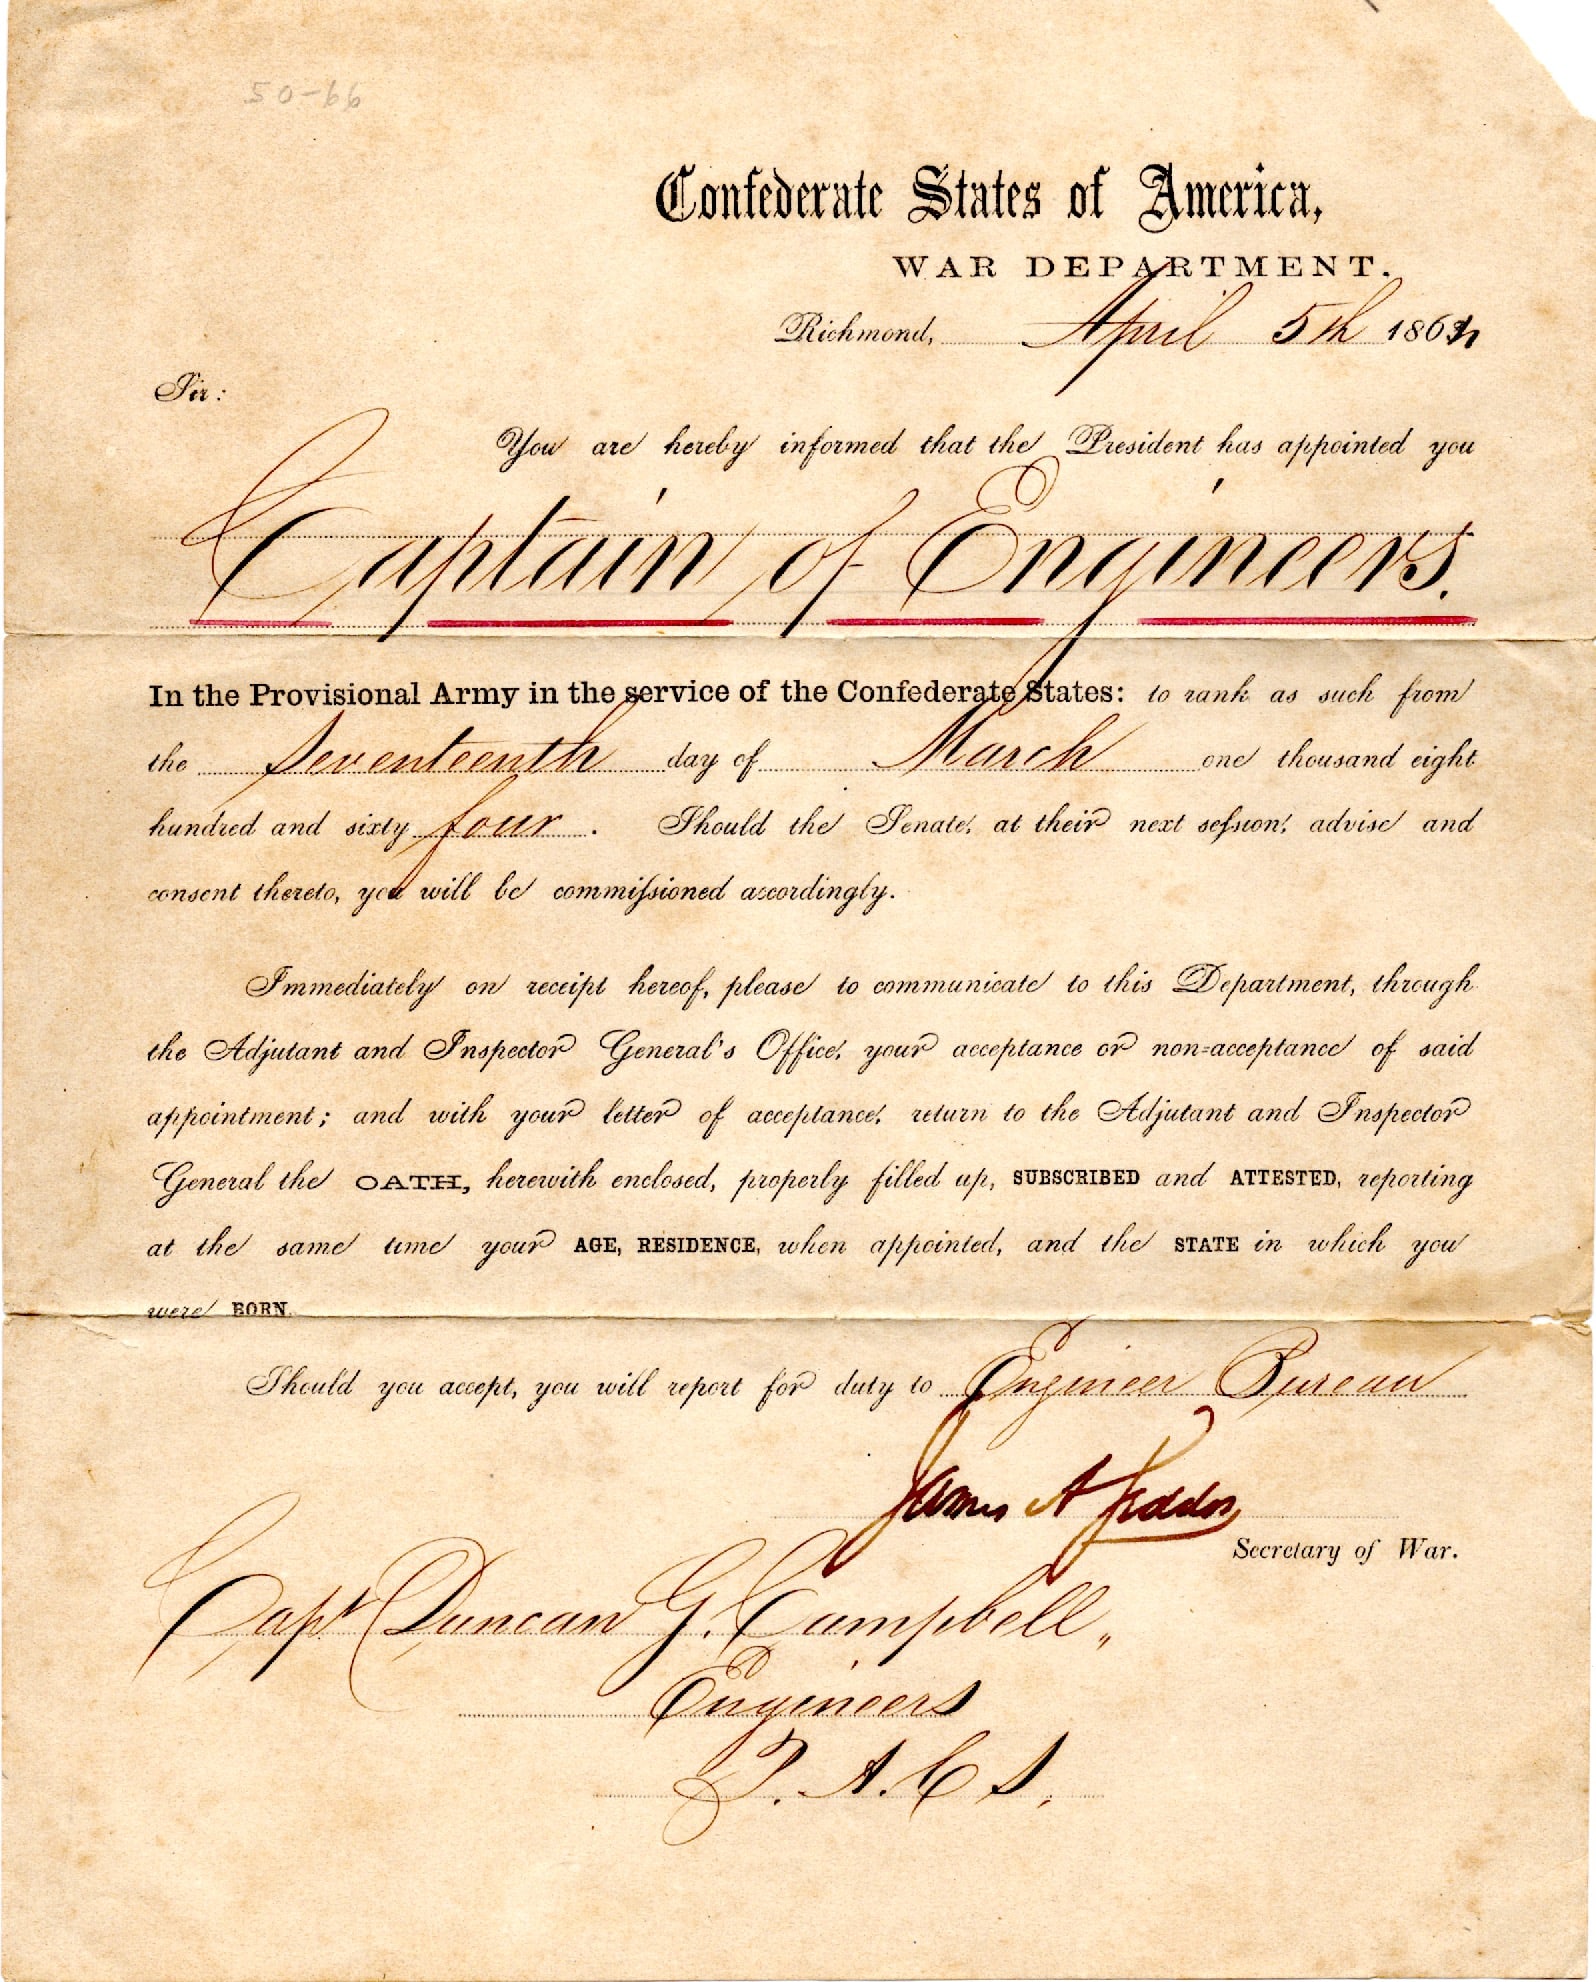 50-66
Confederate States of America,
WAR DEPARTMENT.
Richmond, April 5th 1864
Sir:
You are hereby informed that the President has appointed you
Captain of Engineers.
In the Provisional Army in the service of the Confederate States: to rank as such from
the Seventeenth day of March one thousand eight
hundred and sixty four. Should the Senate, at their next session, advise and
consent thereto, you will be commissioned accordingly.
Immediately on receipt hereof, please to communicate to this Department, through
the Adjutant and Inspector General's Office, your acceptance or non-acceptance of said
appointment; and with your letter of acceptance, return to the Adjutant and Inspector
General the OATH, herewith enclosed, properly filled up, SUBSCRIBED and ATTESTED, reporting
at the same time your AGE, RESIDENCE, when appointed, and the STATE in which you
were BORN.
Should you accept, you will report for duty to Engineer Bureau
James A Seddon
Secretary of War.
Capt Duncan G. Campbell,
Engineers
P. A. C S.